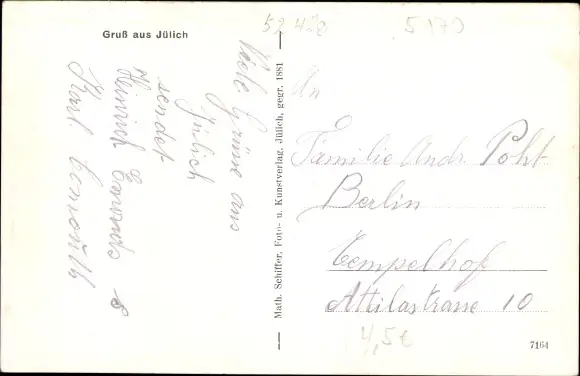 Gruß aus Jülich
Viele Grüße aus
Jülich
sendet
Heinrich
Karl
Math. Schiffer, Foto- u. Kunstverlag, Jülich, gegr. 1881
5170
An
Familie Andr. Poht
Berlin
Tempelhof
Attilastrasse 10
4,5€
7164